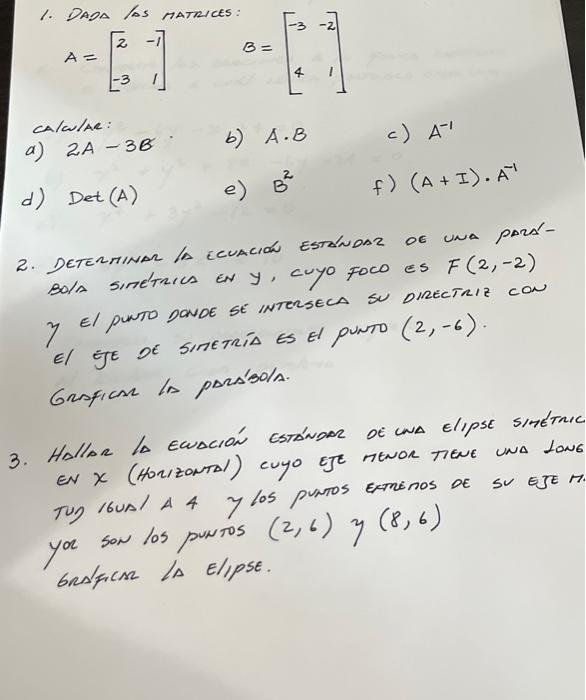 1. DADA las MATRICES:
A = [2 -1
-3 1] B = [-3 -2
4 1]
calcular:
a) 2A - 3B b) A·B c) A⁻¹
d) Det (A) e) B² f) (A + I)·A⁻¹
2. DETERMINAR la ECUACIÓN ESTÁNDAR DE UNA PARÁ-
BOLA SIMÉTRICA EN y, cuyo FOCO ES F(2,-2)
y El PUNTO DONDE SE INTERSECA SU DIRECTRIZ CON
El EJE DE SIMETRÍA ES El PUNTO (2,-6).
GRAFICAR la PARÁBOLA.
3. HALLAR la ECUACIÓN ESTÁNDAR DE UNA Elipse SIMÉTRIC
EN X (HORIZONTAL) cuyo EJE MENOR TIENE UNA LONG
TUD IGUAL A 4 y los PUNTOS EXTREMOS DE SU EJE MA
yor SON los PUNTOS (2,6) y (8,6)
GRAFICAR la Elipse.